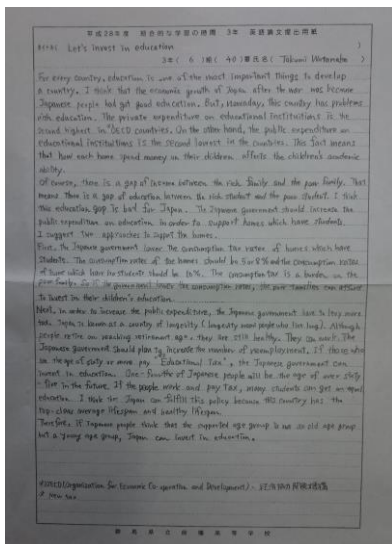 平成28年度 総合的な学習の時間 3年 英語論文提出用紙
Let's invest in education
3年( 6 )組( 40 )番氏名( Takumi Watanabe )
For every country, education is one of the most important things to develop
a country. I think that the economic growth of Japan after the war was because
Japanese people had got good education. But, nowaday, this country has problems
with education. The private expenditure on educational institutions is the
second highest in *OECD countries. On the other hand, the public expenditure on
educational institutions is the second lowest in the countries. This fact means
that how each home spend money on their children affects the children's academic
ability.
Of course, there is a gap of income between the rich family and the poor family. That
means there is a gap of education between the rich student and the poor student. I think
this education gap is bad for Japan. The Japanese government should increase the
public expenditure on education in order to support homes which have students.
I suggest two approaches to support the homes.
First, the Japanese government lower the consumption tax rates of homes which have
students. The consumption rates of the homes should be 5 or 8% and the consumption rates
of home which have no students should be 10%. The consumption tax is a burden on the
poor family. So if the government lower the consumption rates, the poor families can afford
to invest in their children's education.
Next, in order to increase the public expenditure, the Japanese government have to levy more
tax. Japan is known as a country of longevity (longevity means people who live long). Although
people retire on reaching retirement age, they are still healthy. They can work. The
Japanese government should plan to increase the number of reemployment. If those who
on the age of sixty or more pay "Educational Tax", the Japanese government can
invest in education. One-fourth of Japanese people will be the age of over sixty
five in the future. If the people work and pay tax, many students can get an equal
education. I think the Japan can fulfill this policy because this country has the
top-class average lifespan and healthy lifespan.
Therefore, if Japanese people think that the supported age group is not an old age group
but a young age group, Japan can invest in education.
*OECD (Organization for Economic Co-operation and Development) - 経済協力開発機構
* New tax